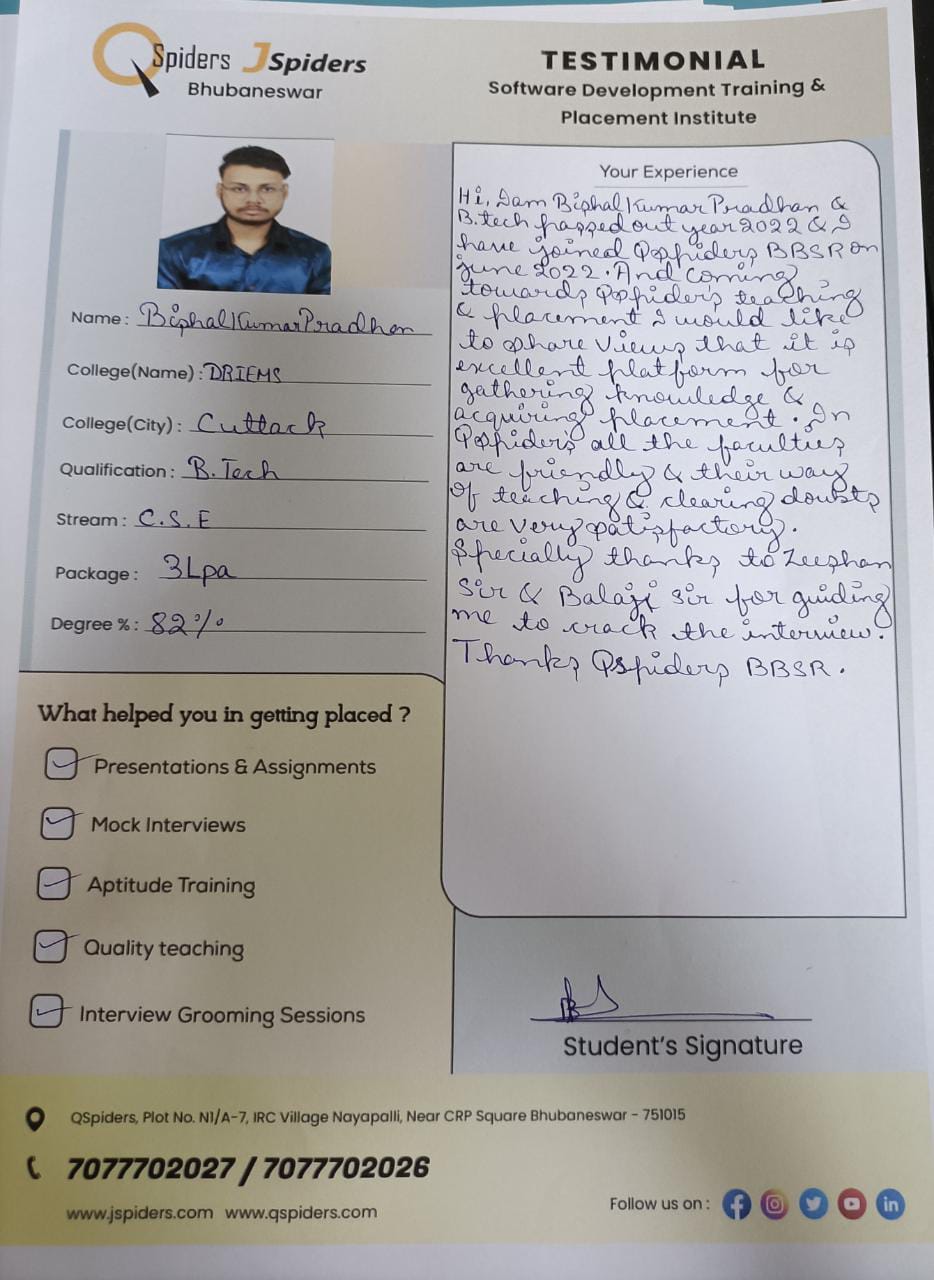 QSpiders JSpiders
Bhubaneswar
TESTIMONIAL
Software Development Training &
Placement Institute
Name : Bishal Kumar Pradhan
College(Name) : DRIEMS
College(City) : Cuttack
Qualification : B.Tech
Stream : C.S.E
Package : 3Lpa
Degree % : 82%
What helped you in getting placed ?
Presentations & Assignments
Mock Interviews
Aptitude Training
Quality teaching
Interview Grooming Sessions
Your Experience
Hi, I am Bishal Kumar Pradhan &
B.tech passed out year 2022 & I
have joined Qspiders BBSR on
june 2022. And coming
towards Qspider's teaching
& placement I would like
to share views that it is
excellent platform for
gathering knowledge &
acquiring placement. In
Qspider's all the faculties
are friendly & their way
of teaching & clearing doubts
are very satisfactory.
Specially thanks to Zeeshan
Sir & Balaji sir for guiding
me to crack the interview.
Thanks Qspiders BBSR.
Student's Signature
QSpiders, Plot No. N1/A-7, IRC Village Nayapalli, Near CRP Square Bhubaneswar - 751015
7077702027 / 7077702026
www.jspiders.com www.qspiders.com
Follow us on :